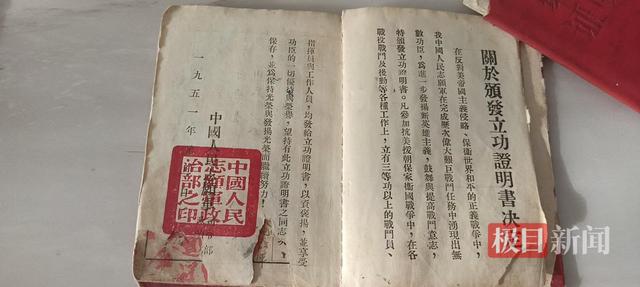 關於頒發立功證明書决定
在反對美帝國主義侵略、保衛世界和平的正義戰爭中，
我中國人民志願軍在完成歷次偉大艱巨戰鬥任務中湧現出無
數功臣，為進一步發揚新英雄主義，鼓舞與提高戰鬥意志，
特頒發立功證明書。凡參加抗美援朝保家衛國戰爭中，在各
戰役戰鬥及後勤等各種工作上，立有三等功以上的戰鬥員、
指揮員與工作人員，均發給立功證明書，以資褒揚，並享受
功臣的一切優待與榮譽，望持有此立功證明書之同志
保存，並為保持光榮與發揚光榮而繼續努力！
中國人民志願軍 部
一九五一年
中國人民
志願軍政
治部之印
極目新闻